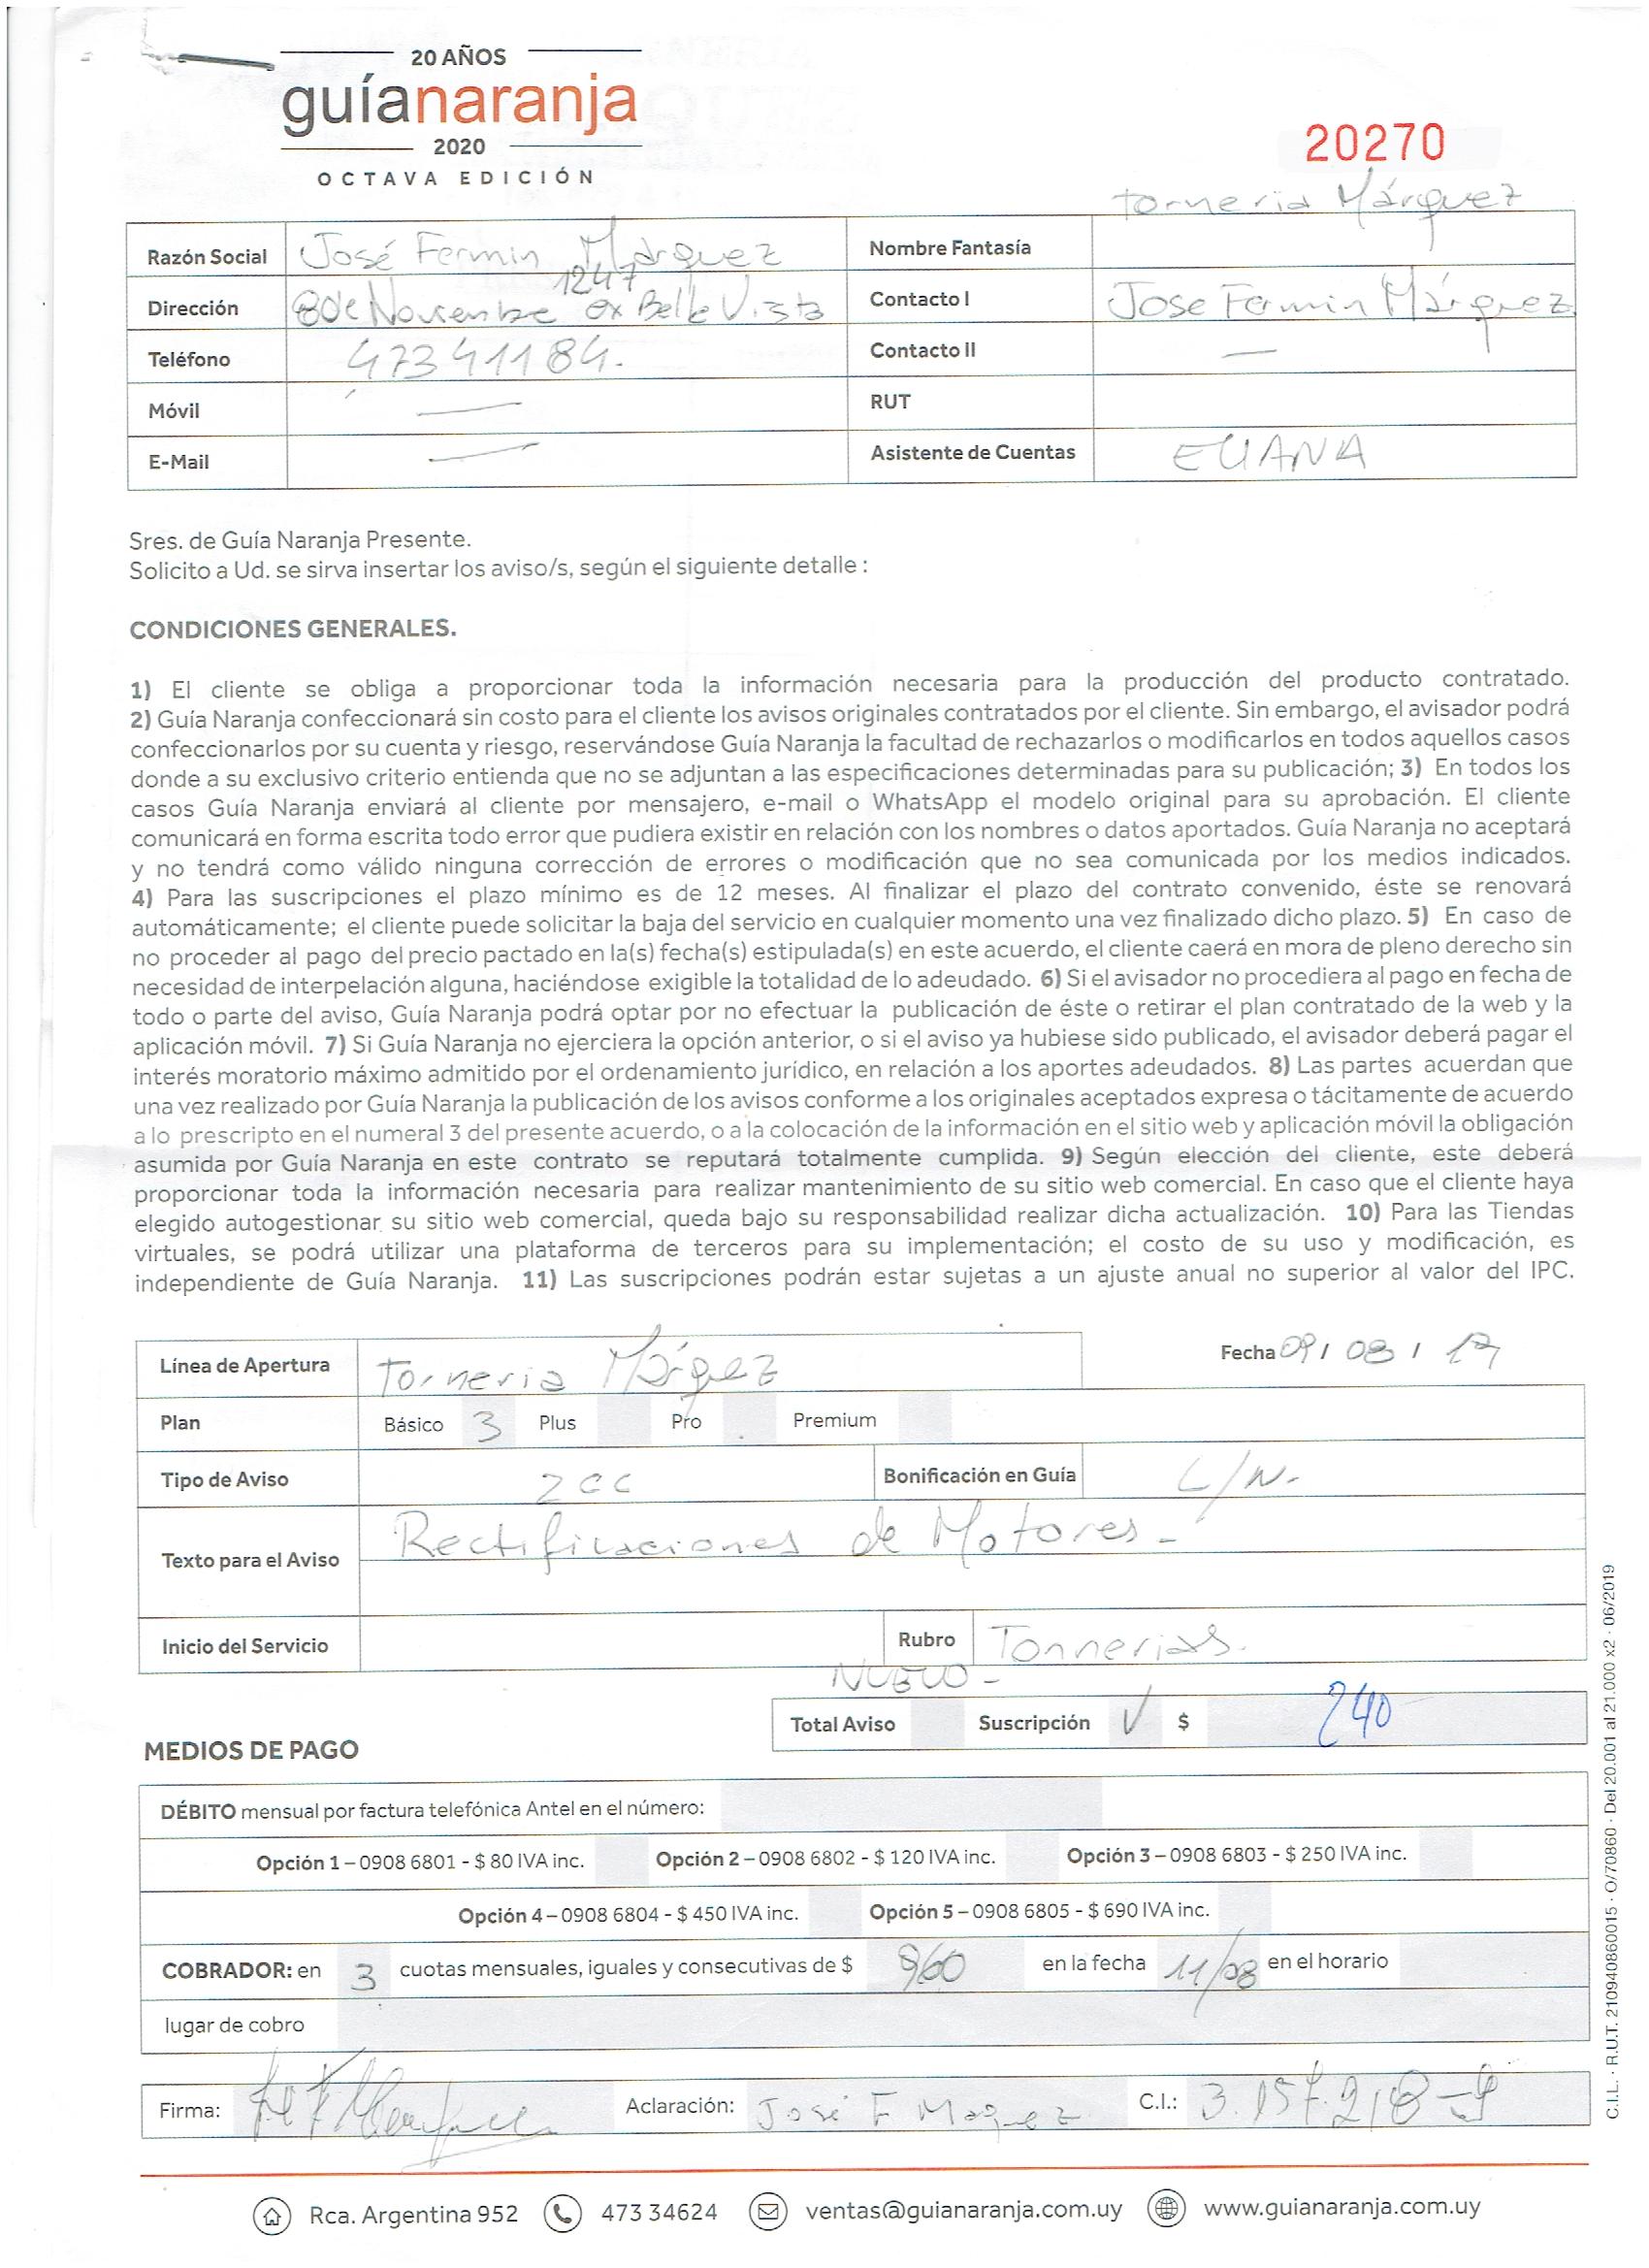 20 AÑOS
guíanaranja
2020
OCTAVA EDICIÓN
20270
tornería Márquez
Razón Social José Fermin Márquez Nombre Fantasía
1247
Dirección 8 de Noviembre ex Belle Vista Contacto I Jose Fermin Márquez
Teléfono 47341184. Contacto II —
Móvil — RUT
E-Mail — Asistente de Cuentas ELIANA
Sres. de Guía Naranja Presente.
Solicito a Ud. se sirva insertar los aviso/s, según el siguiente detalle :
CONDICIONES GENERALES.
1) El cliente se obliga a proporcionar toda la información necesaria para la producción del producto contratado.
2) Guía Naranja confeccionará sin costo para el cliente los avisos originales contratados por el cliente. Sin embargo, el avisador podrá
confeccionarlos por su cuenta y riesgo, reservándose Guía Naranja la facultad de rechazarlos o modificarlos en todos aquellos casos
donde a su exclusivo criterio entienda que no se adjuntan a las especificaciones determinadas para su publicación; 3) En todos los
casos Guía Naranja enviará al cliente por mensajero, e-mail o WhatsApp el modelo original para su aprobación. El cliente
comunicará en forma escrita todo error que pudiera existir en relación con los nombres o datos aportados. Guía Naranja no aceptará
y no tendrá como válido ninguna corrección de errores o modificación que no sea comunicada por los medios indicados.
4) Para las suscripciones el plazo mínimo es de 12 meses. Al finalizar el plazo del contrato convenido, éste se renovará
automáticamente; el cliente puede solicitar la baja del servicio en cualquier momento una vez finalizado dicho plazo. 5) En caso de
no proceder al pago del precio pactado en la(s) fecha(s) estipulada(s) en este acuerdo, el cliente caerá en mora de pleno derecho sin
necesidad de interpelación alguna, haciéndose exigible la totalidad de lo adeudado. 6) Si el avisador no procediera al pago en fecha de
todo o parte del aviso, Guía Naranja podrá optar por no efectuar la publicación de éste o retirar el plan contratado de la web y la
aplicación móvil. 7) Si Guía Naranja no ejerciera la opción anterior, o si el aviso ya hubiese sido publicado, el avisador deberá pagar el
interés moratorio máximo admitido por el ordenamiento jurídico, en relación a los aportes adeudados. 8) Las partes acuerdan que
una vez realizado por Guía Naranja la publicación de los avisos conforme a los originales aceptados expresa o tácitamente de acuerdo
a lo prescripto en el numeral 3 del presente acuerdo, o a la colocación de la información en el sitio web y aplicación móvil la obligación
asumida por Guía Naranja en este contrato se reputará totalmente cumplida. 9) Según elección del cliente, este deberá
proporcionar toda la información necesaria para realizar mantenimiento de su sitio web comercial. En caso que el cliente haya
elegido autogestionar su sitio web comercial, queda bajo su responsabilidad realizar dicha actualización. 10) Para las Tiendas
virtuales, se podrá utilizar una plataforma de terceros para su implementación; el costo de su uso y modificación, es
independiente de Guía Naranja. 11) Las suscripciones podrán estar sujetas a un ajuste anual no superior al valor del IPC.
Línea de Apertura Torneria Márqez Fecha 09 / 08 / 19
Plan Básico 3 Plus Pro Premium
Tipo de Aviso 2CC Bonificación en Guía L/N-
Texto para el Aviso Rectificaciones de Motores-
Inicio del Servicio Rubro Tornerias.
NUEVO -
Total Aviso Suscripción ✓ $ 240
MEDIOS DE PAGO
DÉBITO mensual por factura telefónica Antel en el número:
Opción 1 – 0908 6801 - $ 80 IVA inc. Opción 2 – 0908 6802 - $ 120 IVA inc. Opción 3 – 0908 6803 - $ 250 IVA inc.
Opción 4 – 0908 6804 - $ 450 IVA inc. Opción 5 – 0908 6805 - $ 690 IVA inc.
COBRADOR: en 3 cuotas mensuales, iguales y consecutivas de $ 960 en la fecha 11/08 en el horario
lugar de cobro
Firma: Aclaración: José F Maqez C.I.: 3.157.218-9
Rca. Argentina 952 473 34624 ventas@guianaranja.com.uy www.guianaranja.com.uy
C.I.L. · R.U.T. 210940860015 · O/70860 · Del 20.001 al 21.000 x2 · 06/2019